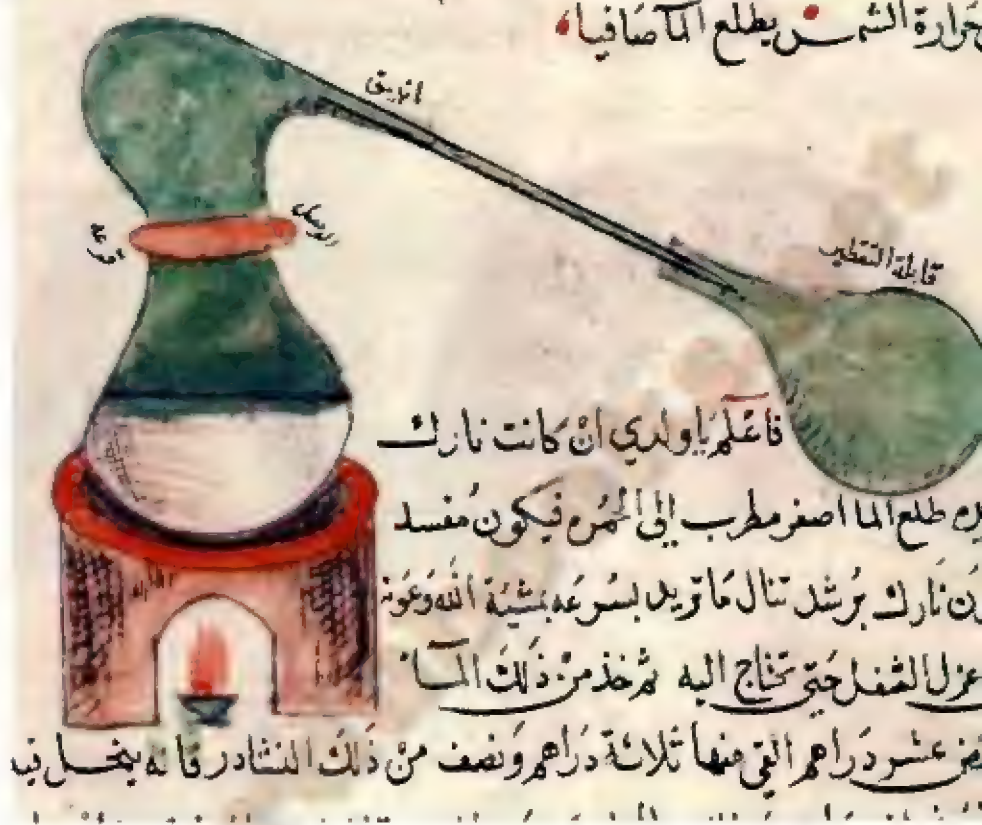 حرارة الشمس يطلع الماء صافيا
انبيق
الوصل
قابلة التقطير
فاعلم يا ولدي ان كانت نارك
طلع الما اصفر مطرب الى الحمره فيكون مفسد
نارك برشد تنال ما تريد بسرعه بمشية الله وعونه
عزل الثفل حتى تحتاج اليه ثم خذ من ذلك الماء
عشر دراهم القى منها ثلاثة دراهم ونصف من ذلك النشادر فانه ينحل فيه